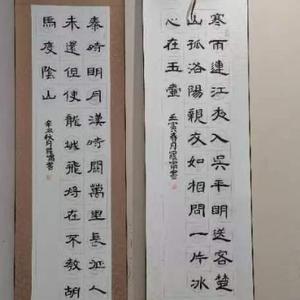 寒雨連江夜入吳平明送客楚
山孤洛陽親友如相問一片冰
心在玉壺
壬寅春月
秦時明月漢時關萬里長征人
未還但使龍城飛將在不教胡
馬度陰山
辛丑秋月